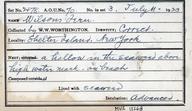 Set No. A.O.U. No. 70 No. in set 3 July 11th
Name Wilson's Tern
Collected by W. W. WORTHINGTON. Identity, Correct
Locality Shelter Island, New York
Nest: a hollow in the seaweed above
high water mark, on beach
Composed outside of
Lined with seaweed
Incubation Advanced